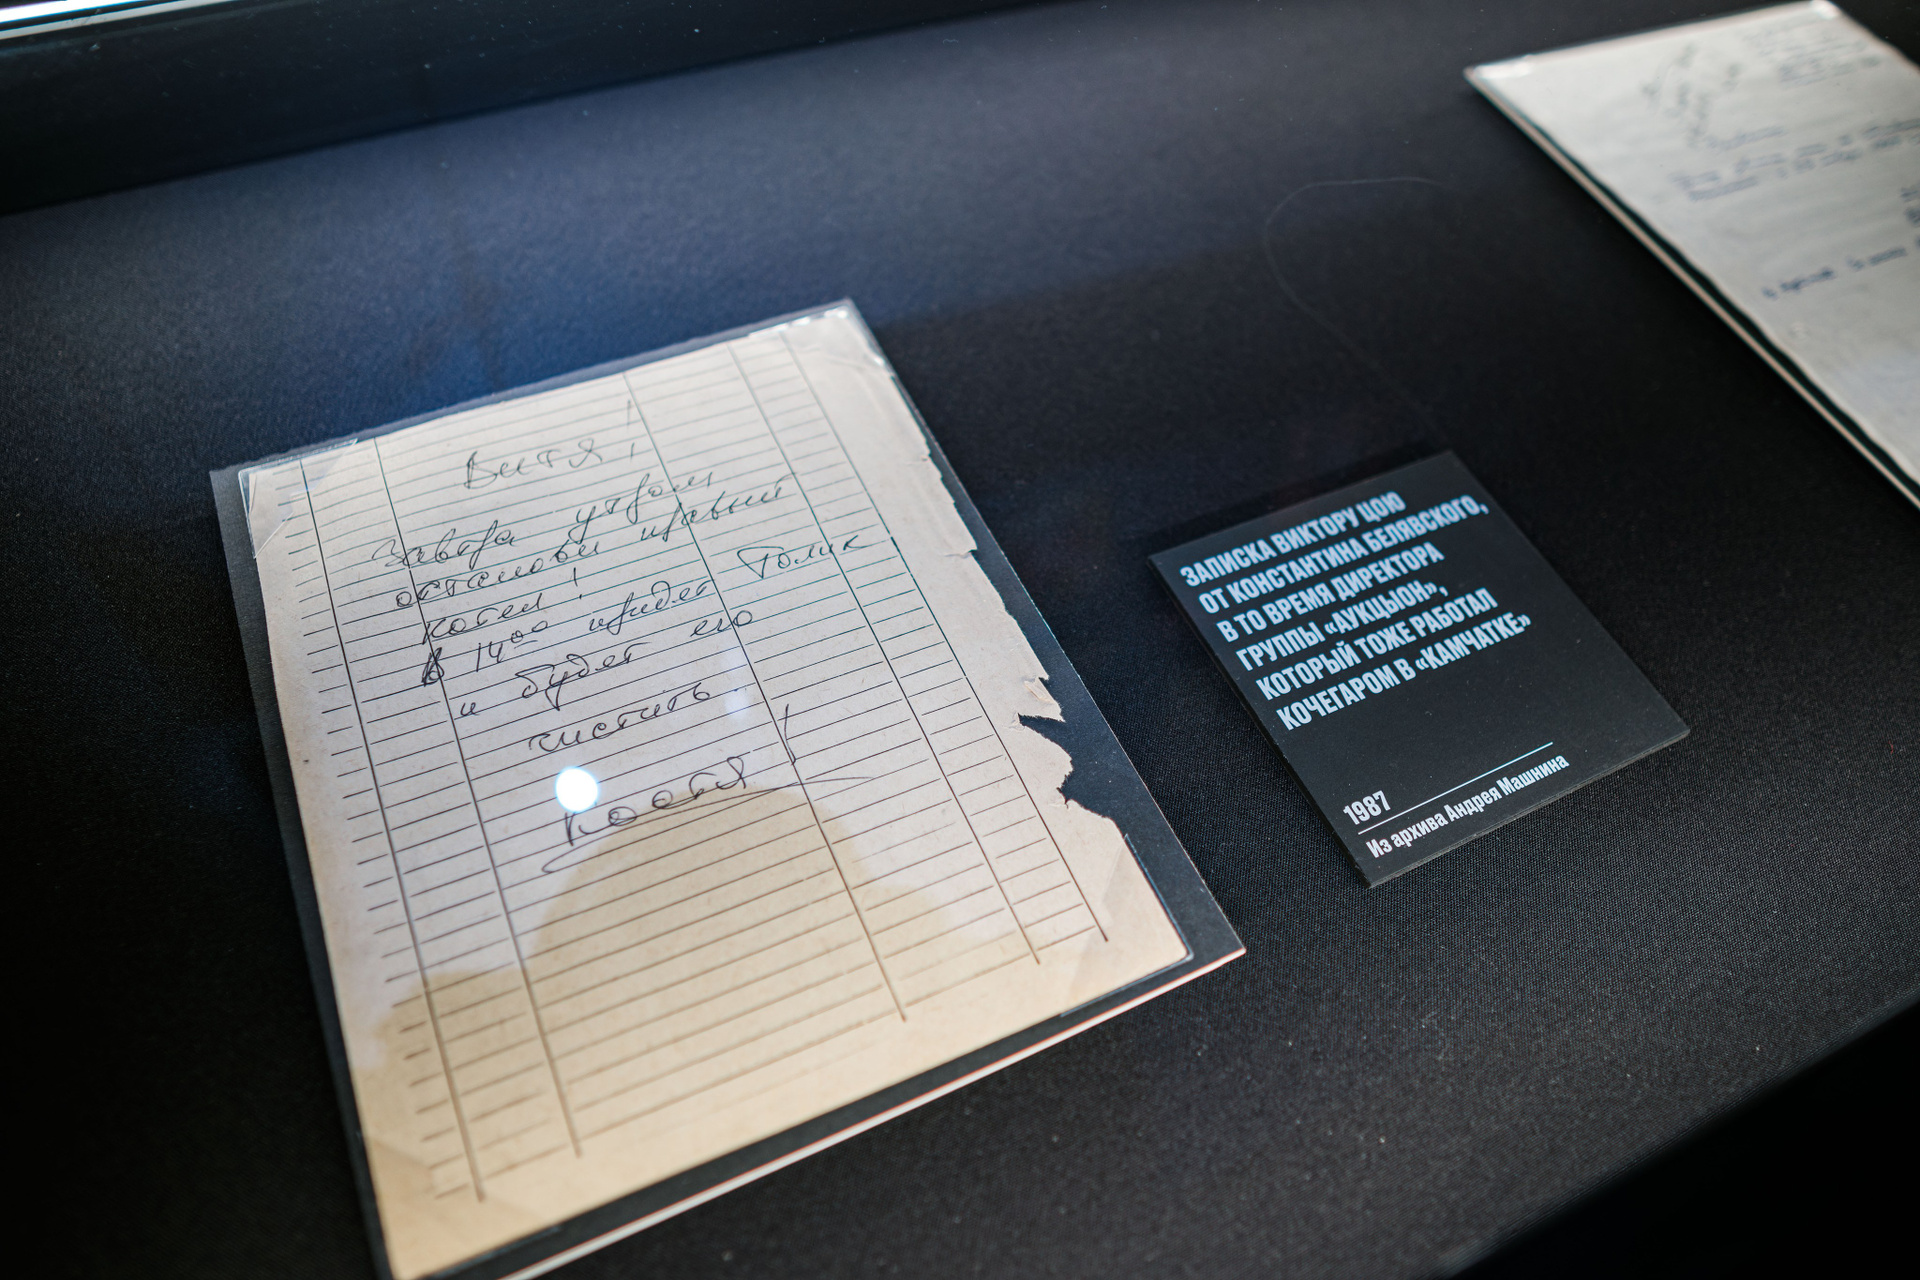 Витя!
Завтра утром
останови правый
котел!
В 14⁰⁰ придет Толик
и будет его
чистить!
Костя
ЗАПИСКА ВИКТОРУ ЦОЮ
ОТ КОНСТАНТИНА БЕЛЯВСКОГО,
В ТО ВРЕМЯ ДИРЕКТОРА
ГРУППЫ «АУКЦЫОН»,
КОТОРЫЙ ТОЖЕ РАБОТАЛ
КОЧЕГАРОМ В «КАМЧАТКЕ»
1987
Из архива Андрея Машнина